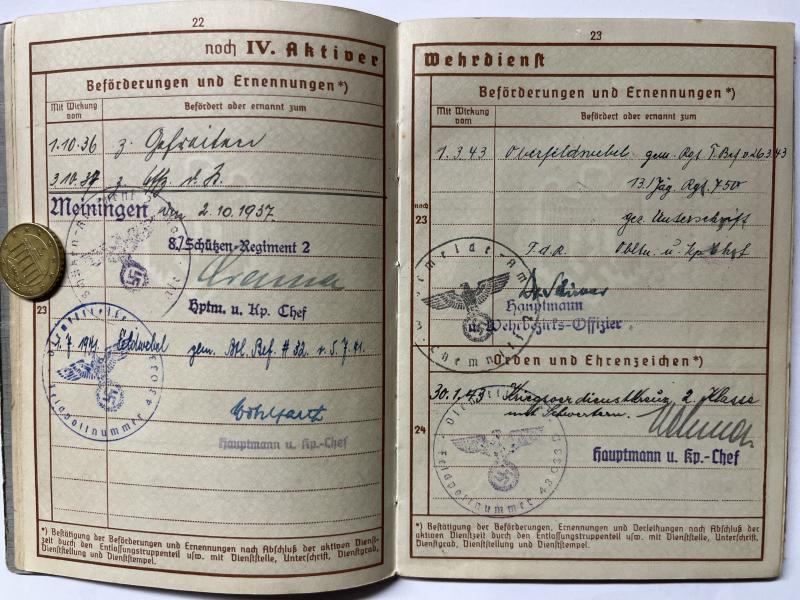 22
noch IV. Aktiver
Beförderungen und Ernennungen*)
Mit Wirkung vom
Befördert oder ernannt zum
1.10.36 z. Gefreiten
3.10.37 z. Uffz d. R.
Meiningen, den 2.10.1937
8./Schützen-Regiment 2
Hptm. u. Kp. Chef
23
1.7.1941 Feldwebel gem. Btl. Bef. # 32. v. 5.7.41.
Hauptmann u. Kp.-Chef
Feldpostnummer
*) Bestätigung der Beförderungen und Ernennungen nach Abschluß der aktiven Dienst-
zeit durch den Entlassungstruppenteil usw. mit Dienststelle, Unterschrift, Dienstgrad,
Dienststellung und Dienststempel.
23
Wehrdienst
Beförderungen und Ernennungen*)
Mit Wirkung vom
Befördert oder ernannt zum
1.3.43 Oberfeldwebel gem. Rgt. T. Bef. v. 26.3.43
13./Jäg. Rgt. 750
noch
23
gez. Unterschrift
F.d.R. Obltn. u. Kp Chef
Hauptmann
u. Wehrbezirks-Offizier
Wehrmelde-Amt
Chemnitz
Orden und Ehrenzeichen*)
30.1.43 Kriegsverdienstkreuz 2. Klasse
mit Schwertern.
24
Hauptmann u. Kp.-Chef
Feldpostnummer
*) Bestätigung der Beförderungen, Ernennungen und Verleihungen nach Abschluß der
aktiven Dienstzeit durch den Entlassungstruppenteil usw. mit Dienststelle, Unterschrift,
Dienstgrad, Dienststellung und Dienststempel.